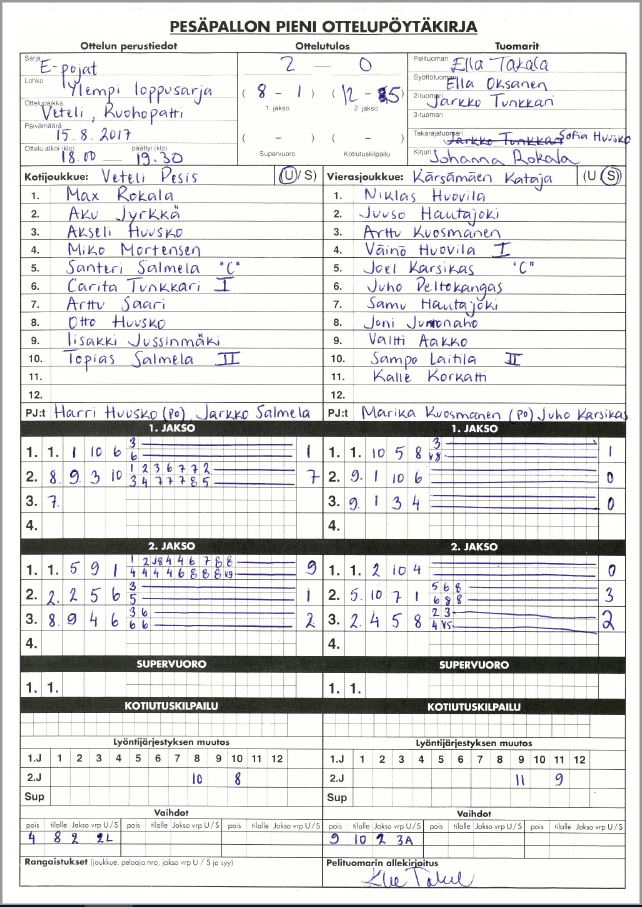 PESÄPALLON PIENI OTTELUPÖYTÄKIRJA
Ottelun perustiedot Ottelutulos Tuomarit
Sarja E-pojat 2 — 0 Pelituomari Ella Takala
Lohko Ylempi loppusarja ( 8 - 1 ) (12 - 5) Syöttötuomari Ella Oksanen
1. jakso 2. jakso
Ottelupaikka Veteli, Kuohopatti 2-tuomari Jarkko Tunkkari
3-tuomari
Päivämäärä 15.8.2017 ( - ) ( - ) Takarajatuomari Jarkko Tunkkari Sofia Huusko
Ottelu alkoi (klo) päättyi (klo) 18.00 — 19.30 Supervuoro Kotiutuskilpailu Kirjuri Johanna Rokala
Kotijoukkue: Veteli Pesis (U/S) Vierasjoukkue: Kärsämäen Kataja (U/S)
1. Max Rokala 1. Niklas Huovila
2. Aku Jyrkkä 2. Juuso Hautajoki
3. Akseli Huusko 3. Arttu Kuosmanen
4. Miko Mortensen 4. Väinö Huovila I
5. Santeri Salmela "C" 5. Joel Karsikas "C"
6. Carita Tunkkari I 6. Juho Peltokangas
7. Arttu Saari 7. Samu Hautajoki
8. Otto Huusko 8. Joni Juntonaho
9. Iisakki Jussinmäki 9. Valtti Aakko
10. Topias Salmela II 10. Sampo Laitila II
11. 11. Kalle Korkatti
12. 12.
PJ:t Harri Huusko (PO), Jarkko Salmela PJ:t Marika Kuosmanen (PO) Juho Karsikas
1. JAKSO 1. JAKSO
1. 1. 1 10 6 3 1 1. 1. 10 5 8 3 1
6 V8
2. 8. 9 3 10 1 2 3 6 7 7 2 7 2. 9. 1 10 6 0
3 4 7 7 7 8 5
3. 7. 3. 9. 1 3 4 0
4. 4.
2. JAKSO 2. JAKSO
1. 1. 5 9 1 1 2 J8 4 4 6 7 8 8 9 1. 1. 2 10 4 0
4 4 4 4 6 8 8 8 V9
2. 2. 2 5 6 3 1 2. 5. 10 7 1 5 6 8 3
5 6 8 8
3. 8. 9 4 6 3 6 2 3. 2. 4 5 8 2 3 2
6 6 4 V5
4. 4.
SUPERVUORO SUPERVUORO
1. 1. 1. 1.
KOTIUTUSKILPAILU KOTIUTUSKILPAILU
Lyöntijärjestyksen muutos Lyöntijärjestyksen muutos
1.J 1 2 3 4 5 6 7 8 9 10 11 12 1.J 1 2 3 4 5 6 7 8 9 10 11 12
2.J 10 8 2.J 11 9
Sup Sup
Vaihdot Vaihdot
pois tilalle Jakso vrp U/S pois tilalle Jakso vrp U/S pois tilalle Jakso vrp U/S pois tilalle Jakso vrp U/S pois tilalle Jakso vrp U/S pois tilalle Jakso vrp U/S
4 8 2 2L 9 10 2 3A
Rangaistukset (joukkue, pelaaja nro, jakso vrp U / S ja syy) Pelituomarin allekirjoitus